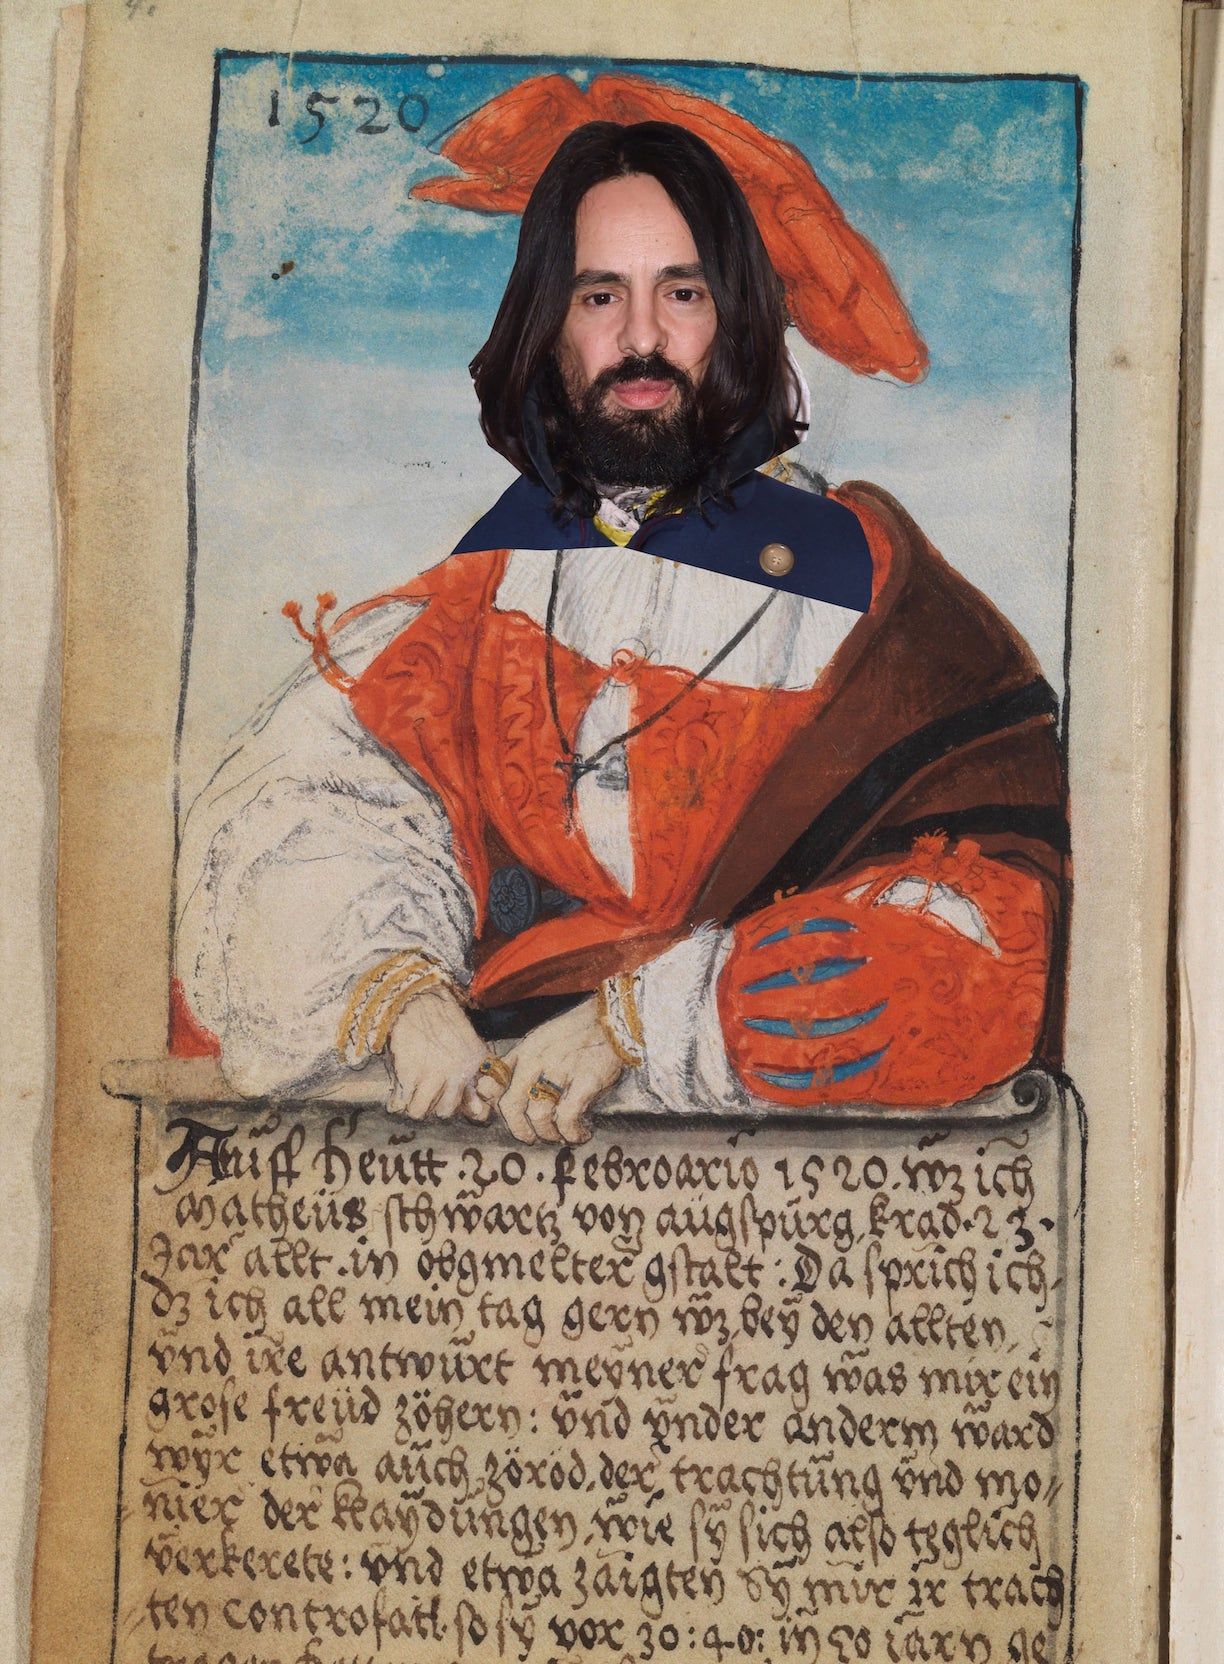 1520
Aüff heütt .20. febroario 1520. wz ich
Matheüs schwartz von aügspürg, krad. 23.
Jar allt. in obgmelter gstalt: Da sprich ich,
dz ich all mein tag gern wz bey den allten,
vnd ire antwürt meyner frag was mir ein
grose freüd zöhern: vnd vnder anderm ward
wyr etwa aüch zöröd, der trachtüng vnd mo〃
nier der klaydüngen, wie sy sich also teglich
verkerete: vnd etwa zaigten sy mir ir trach
〃ten controfatt. so sy vor 30: 40: in 50 iarn ge
tragen hetten